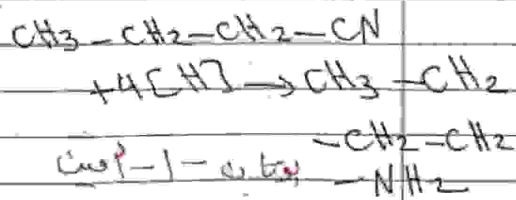 CH3-CH2-CH2-CN
+4[H] → CH3-CH2
-CH2-CH2
بوتان -1- أمين
-NH2